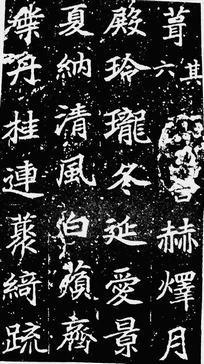 葺其六赫燡月
殿玲瓏冬延愛景
夏納清風白蘋齊
葉丹桂連藂綺疏